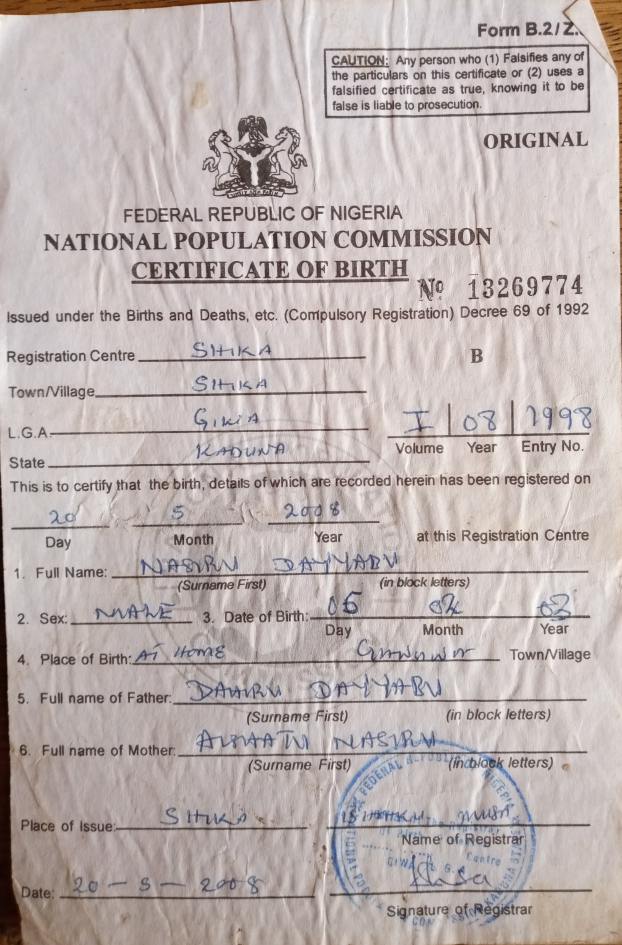 Form B.2/Z.
CAUTION: Any person who (1) Falsifies any of
the particulars on this certificate or (2) uses a
falsified certificate as true, knowing it to be
false is liable to prosecution.
ORIGINAL
FEDERAL REPUBLIC OF NIGERIA
NATIONAL POPULATION COMMISSION
CERTIFICATE OF BIRTH
No 13269774
Issued under the Births and Deaths, etc. (Compulsory Registration) Decree 69 of 1992
Registration Centre SHIKA
B
Town/Village SHIKA
L.G.A.
I 08 1998
Volume Year Entry No.
State KADUNA
This is to certify that the birth, details of which are recorded herein has been registered on
20 5 2008
Day Month Year at this Registration Centre
1. Full Name: NASIRU DAYYABU
(Surname First) (in block letters)
2. Sex: MALE 3. Date of Birth: 06
Day Month Year
4. Place of Birth: AT HOME Town/Village
5. Full name of Father: DAHIRU DAYYABU
(Surname First) (in block letters)
6. Full name of Mother: NASIRU
(Surname First) (in block letters)
Place of Issue: SHIKA MUSA
Name of Registrar
Date: 20 - 5 - 2008
Signature of Registrar